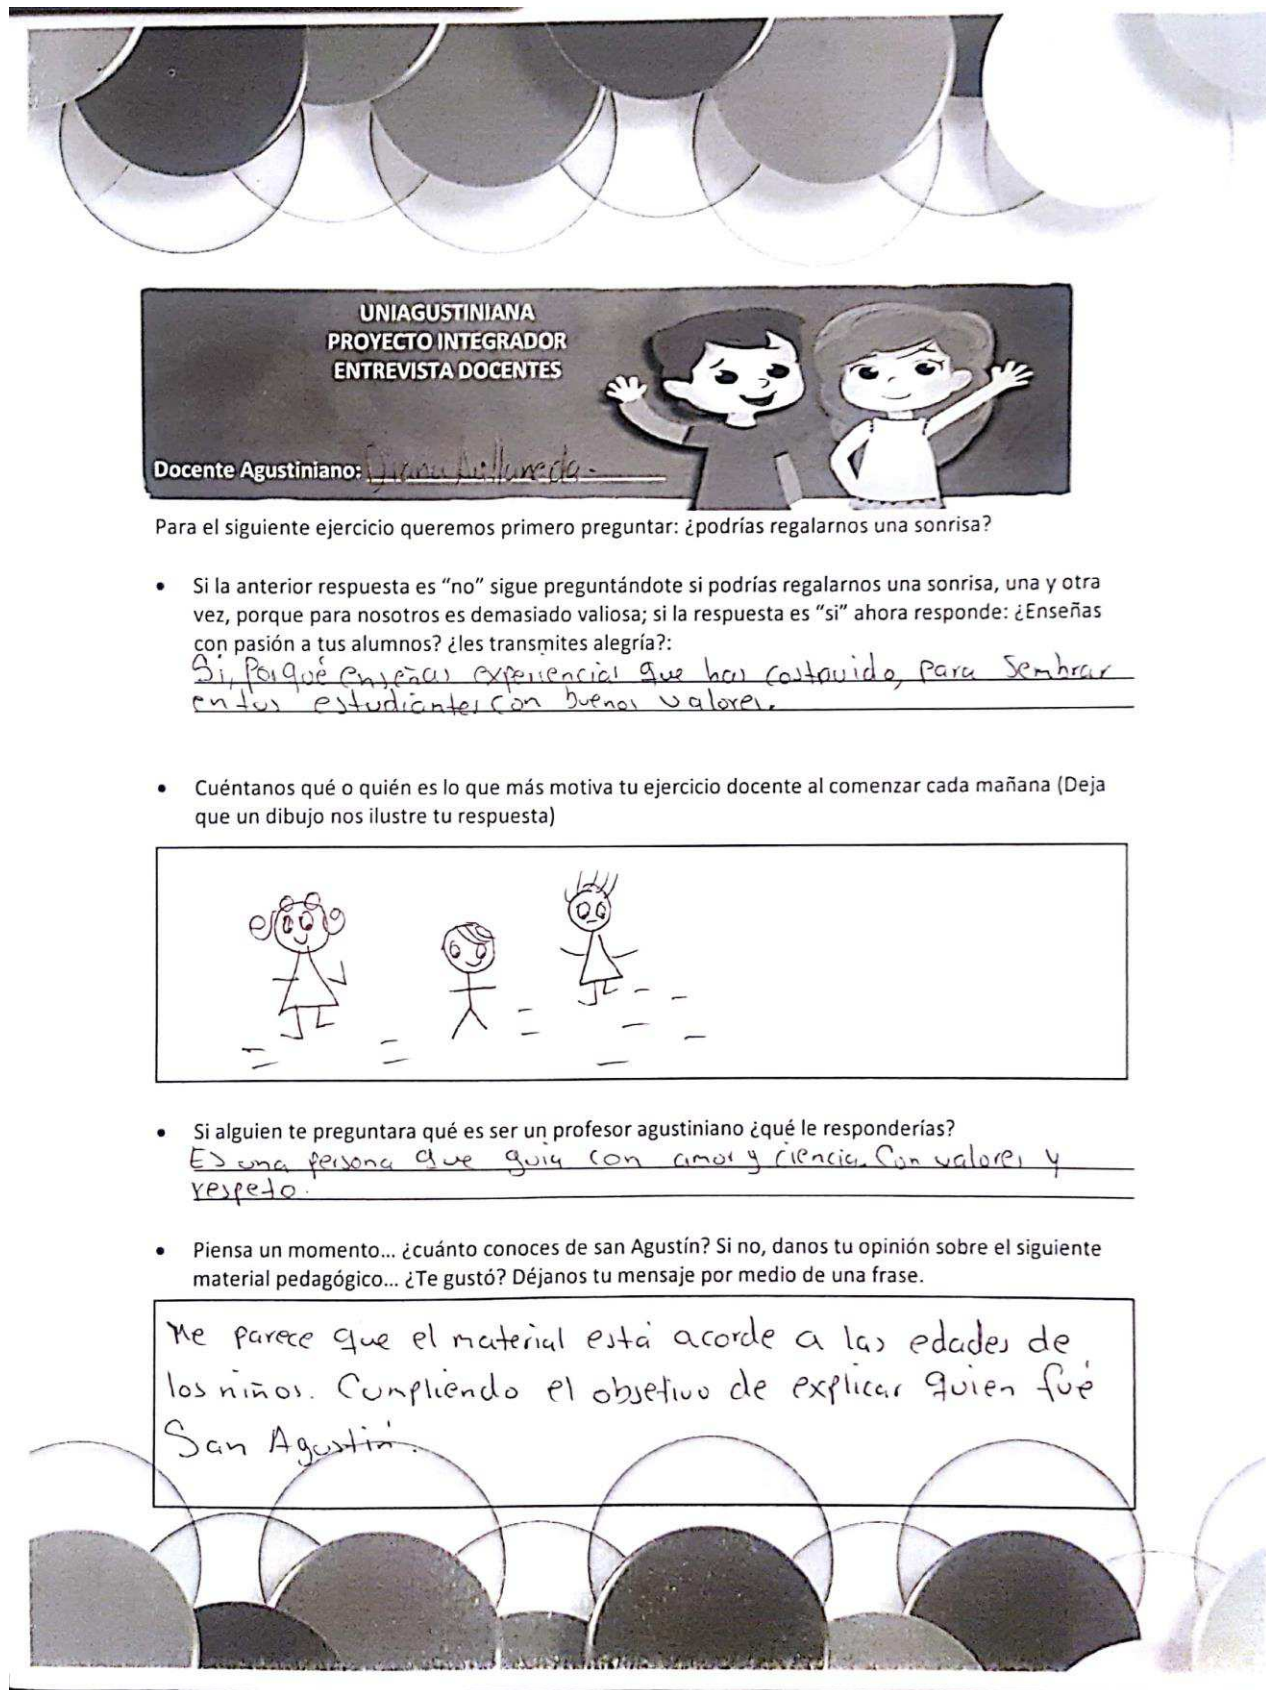 UNIAGUSTINIANA
PROYECTO INTEGRADOR
ENTREVISTA DOCENTES
Docente Agustiniano: Diana
Para el siguiente ejercicio queremos primero preguntar: ¿podrías regalarnos una sonrisa?
• Si la anterior respuesta es “no” sigue preguntándote si podrías regalarnos una sonrisa, una y otra
vez, porque para nosotros es demasiado valiosa; si la respuesta es “si” ahora responde: ¿Enseñas
con pasión a tus alumnos? ¿les transmites alegría?:
Si, Porqué enseñas experiencias que has costruido, para Sembrar
en tus estudiantes con buenos valores.
• Cuéntanos qué o quién es lo que más motiva tu ejercicio docente al comenzar cada mañana (Deja
que un dibujo nos ilustre tu respuesta)
• Si alguien te preguntara qué es ser un profesor agustiniano ¿qué le responderías?
Es una persona que guia con amor y ciencia. Con valores y
respeto.
• Piensa un momento... ¿cuánto conoces de san Agustín? Si no, danos tu opinión sobre el siguiente
material pedagógico... ¿Te gustó? Déjanos tu mensaje por medio de una frase.
Me parece que el material está acorde a las edades de
los niños. Cumpliendo el objetivo de explicar quien fué
San Agustín.